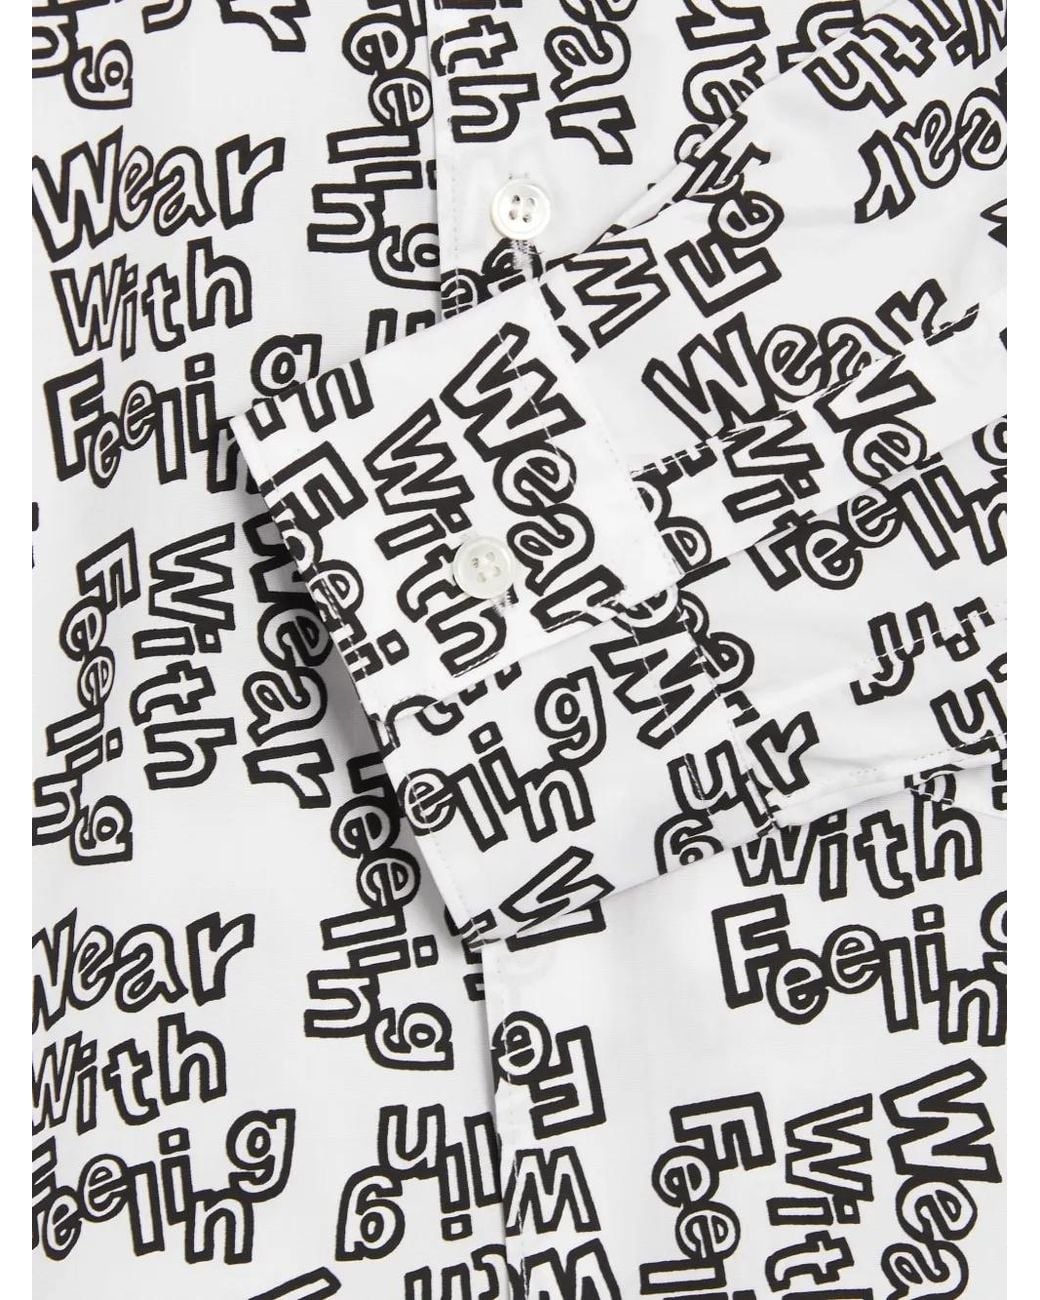 Wear
With
Feeling
Wear
With
Feeling
Wear
With
Feeling
Wear
With
Feeling
Wear
With
Feeling
With
Feeling
Wear
With
Feeling